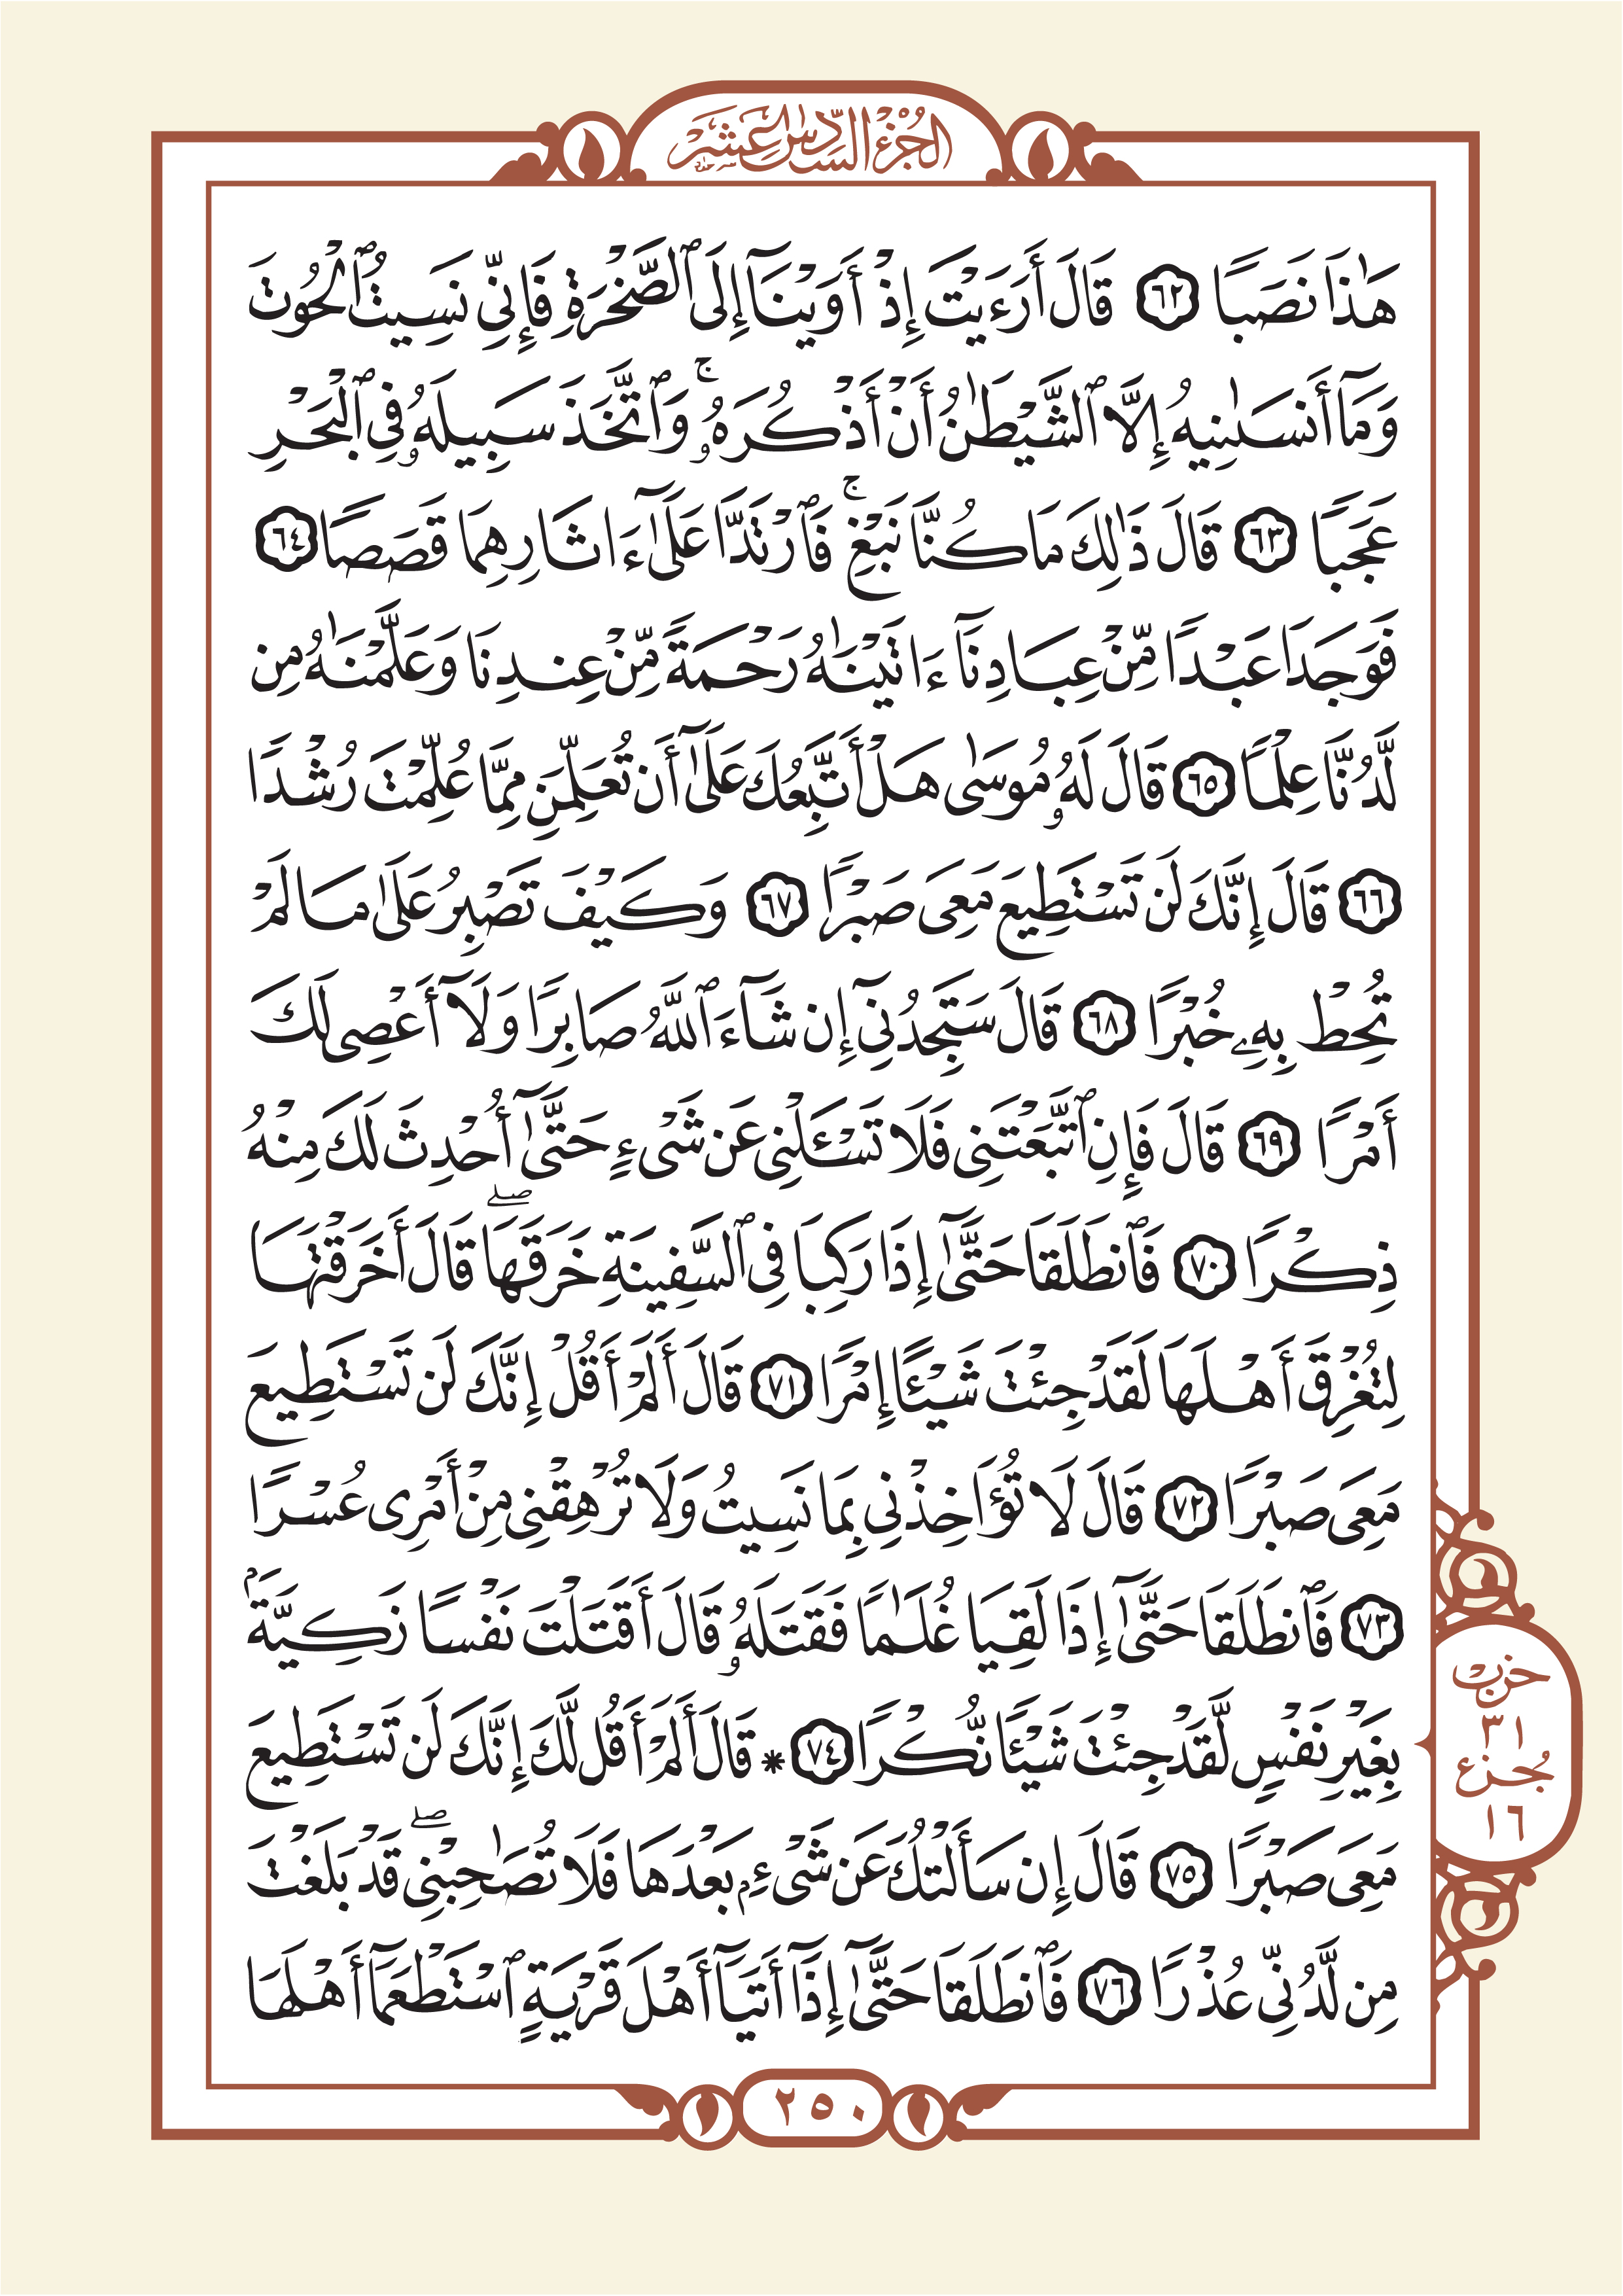 الجزء السادس عشر
هَٰذَا نَصَبًا ٦٢ قَالَ أَرَءَيْتَ إِذْ أَوَيْنَآ إِلَى ٱلصَّخْرَةِ فَإِنِّي نَسِيتُ ٱلْحُوتَ
وَمَآ أَنسَىٰنِيهُ إِلَّا ٱلشَّيْطَٰنُ أَنْ أَذْكُرَهُۥۚ وَٱتَّخَذَ سَبِيلَهُۥ فِي ٱلْبَحْرِ
عَجَبًا ٦٣ قَالَ ذَٰلِكَ مَا كُنَّا نَبْغِۚ فَٱرْتَدَّا عَلَىٰٓ ءَاثَارِهِمَا قَصَصًا ٦٤
فَوَجَدَا عَبْدًا مِّنْ عِبَادِنَآ ءَاتَيْنَٰهُ رَحْمَةً مِّنْ عِندِنَا وَعَلَّمْنَٰهُ مِن
لَّدُنَّا عِلْمًا ٦٥ قَالَ لَهُۥ مُوسَىٰ هَلْ أَتَّبِعُكَ عَلَىٰٓ أَن تُعَلِّمَنِ مِمَّا عُلِّمْتَ رُشْدًا
٦٦ قَالَ إِنَّكَ لَن تَسْتَطِيعَ مَعِيَ صَبْرًا ٦٧ وَكَيْفَ تَصْبِرُ عَلَىٰ مَا لَمْ
تُحِطْ بِهِۦ خُبْرًا ٦٨ قَالَ سَتَجِدُنِيٓ إِن شَآءَ ٱللَّهُ صَابِرًا وَلَآ أَعْصِي لَكَ
أَمْرًا ٦٩ قَالَ فَإِنِ ٱتَّبَعْتَنِي فَلَا تَسْـَٔلْنِي عَن شَيْءٍ حَتَّىٰٓ أُحْدِثَ لَكَ مِنْهُ
ذِكْرًا ٧٠ فَٱنطَلَقَا حَتَّىٰٓ إِذَا رَكِبَا فِي ٱلسَّفِينَةِ خَرَقَهَاۖ قَالَ أَخَرَقْتَهَا
لِتُغْرِقَ أَهْلَهَا لَقَدْ جِئْتَ شَيْـًٔا إِمْرًا ٧١ قَالَ أَلَمْ أَقُلْ إِنَّكَ لَن تَسْتَطِيعَ
مَعِيَ صَبْرًا ٧٢ قَالَ لَا تُؤَاخِذْنِي بِمَا نَسِيتُ وَلَا تُرْهِقْنِي مِنْ أَمْرِي عُسْرًا
٧٣ فَٱنطَلَقَا حَتَّىٰٓ إِذَا لَقِيَا غُلَٰمًا فَقَتَلَهُۥ قَالَ أَقَتَلْتَ نَفْسًا زَكِيَّةًۢ
بِغَيْرِ نَفْسٍ لَّقَدْ جِئْتَ شَيْـًٔا نُّكْرًا ٧٤ * قَالَ أَلَمْ أَقُل لَّكَ إِنَّكَ لَن تَسْتَطِيعَ
مَعِيَ صَبْرًا ٧٥ قَالَ إِن سَأَلْتُكَ عَن شَيْءِۭ بَعْدَهَا فَلَا تُصَٰحِبْنِيۖ قَدْ بَلَغْتَ
مِن لَّدُنِّي عُذْرًا ٧٦ فَٱنطَلَقَا حَتَّىٰٓ إِذَآ أَتَيَآ أَهْلَ قَرْيَةٍ ٱسْتَطْعَمَآ أَهْلَهَا
حزب
٣١
جزء
١٦
٢٥٠